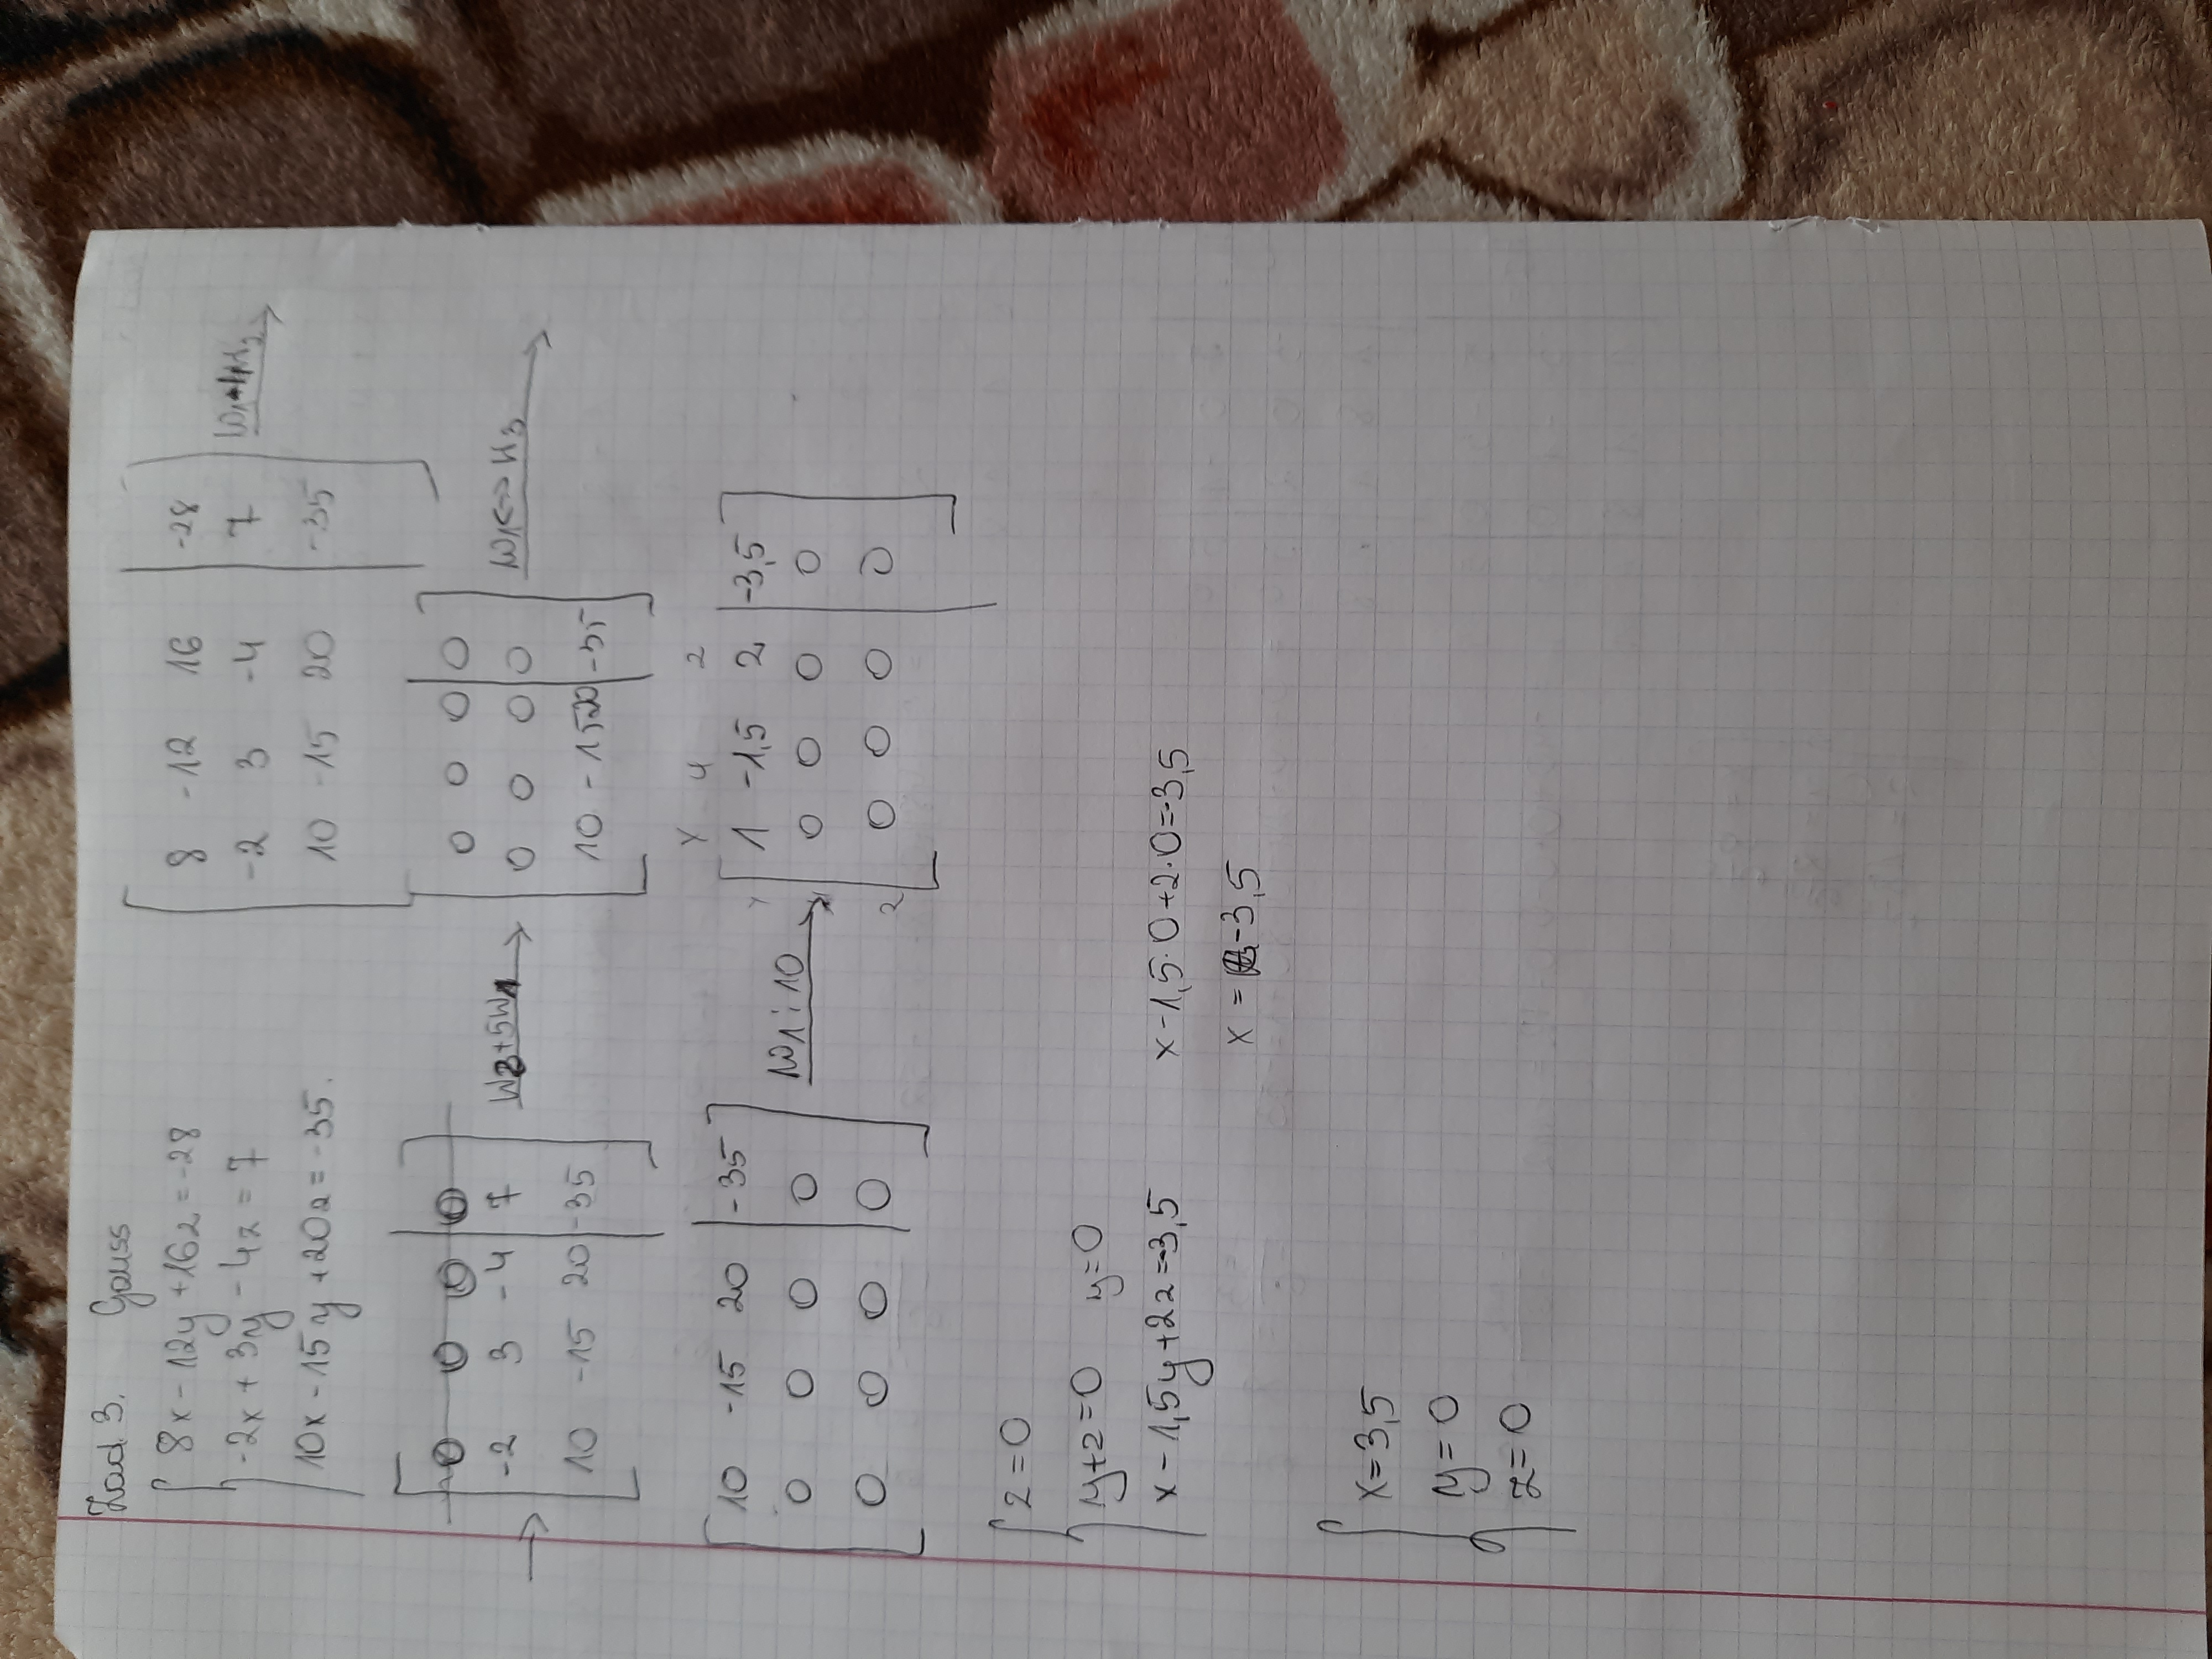 Zad. 3. Gauss
8x - 12y + 16z = -28
-2x + 3y - 4z = 7
10x - 15y + 20z = -35.
8 -12 16 | -28
-2 3 -4 | 7
10 -15 20 | -35
0 0 0 | 0
-2 3 -4 | 7
10 -15 20 | -35
W3+5W1
0 0 0 | 0
0 0 0 | 0
10 -15 20 | -35
W1<->W3
10 -15 20 | -35
0 0 0 | 0
0 0 0 | 0
W1:10
x y z
1 -1,5 2 | -3,5
0 0 0 | 0
z 0 0 0 | 0
z = 0
y+z=0 y=0
x - 1,5y + 2z = -3,5 x - 1,5·0 + 2·0 = -3,5
x = -3,5
x = 3,5
y = 0
z = 0